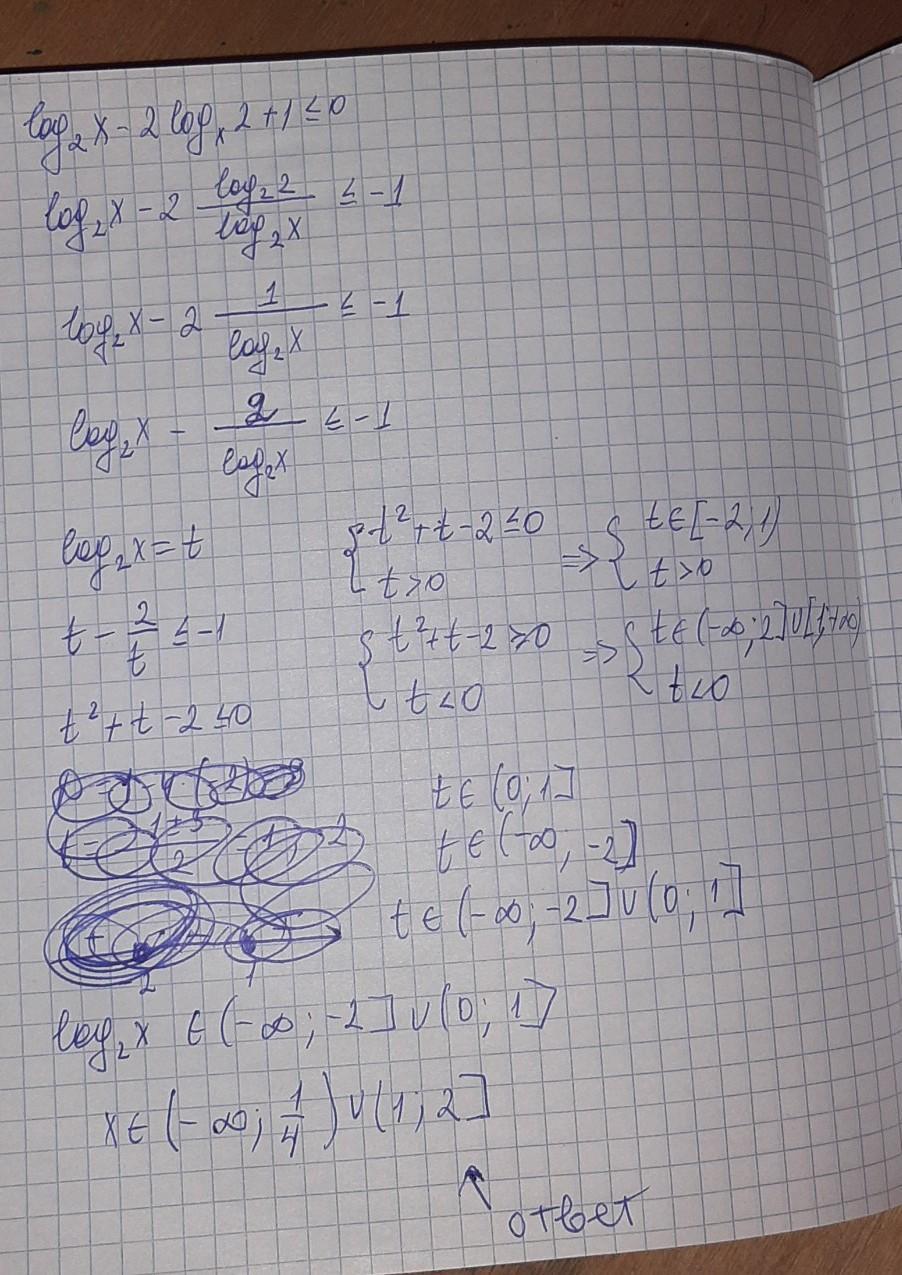 log₂x - 2 logₓ2 + 1 ≤ 0
log₂x - 2 log₂2/log₂x ≤ -1
log₂x - 2 1/log₂x ≤ -1
log₂x - 2/log₂x ≤ -1
log₂x = t
t - 2/t ≤ -1
t² + t - 2 ≤ 0
{ t² + t - 2 ≤ 0 => { t ∈ [-2; 1)
t > 0 t > 0
{ t² + t - 2 ≥ 0 => { t ∈ (-∞; 2] ∪ [1; +∞)
t < 0 t < 0
t ∈ (0; 1]
t ∈ (-∞; -2]
t ∈ (-∞; -2] ∪ (0; 1]
log₂x ∈ (-∞; -2] ∪ (0; 1]
x ∈ (-∞; 1/4) ∪ (1; 2]
ответ